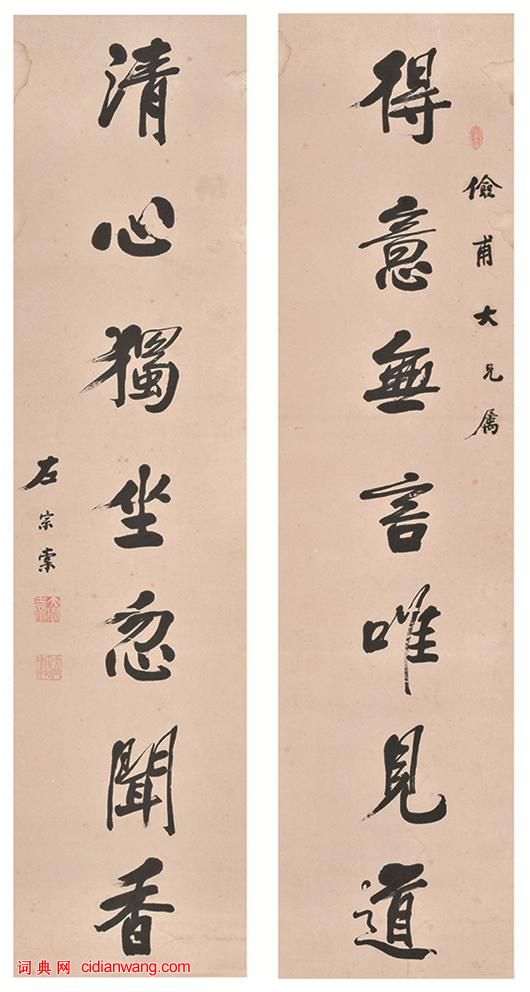 儉甫大兄属
得意無言唯見道
清心獨坐忽聞香
左宗棠
词典网 cidianwang.com